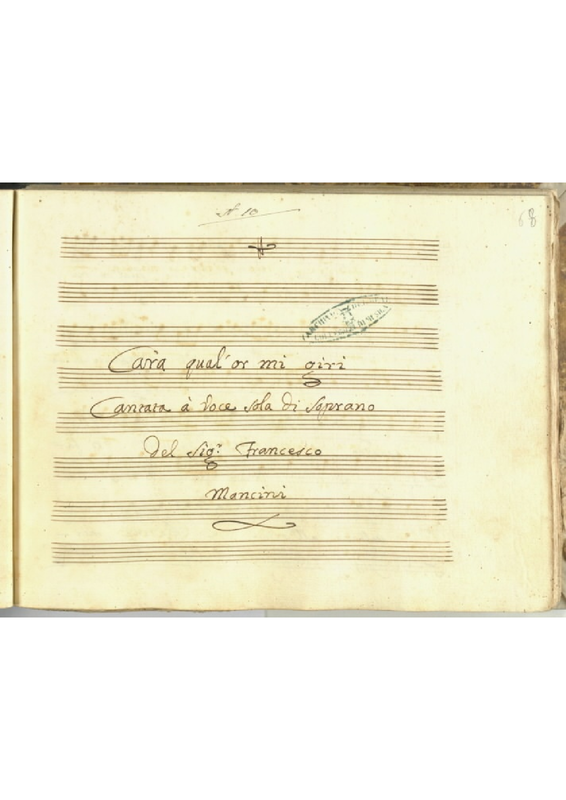 N 10
68
Cara qual'or mi giri
Cantata à Voce sola di Soprano
Del Sig.r Francesco
Mancini